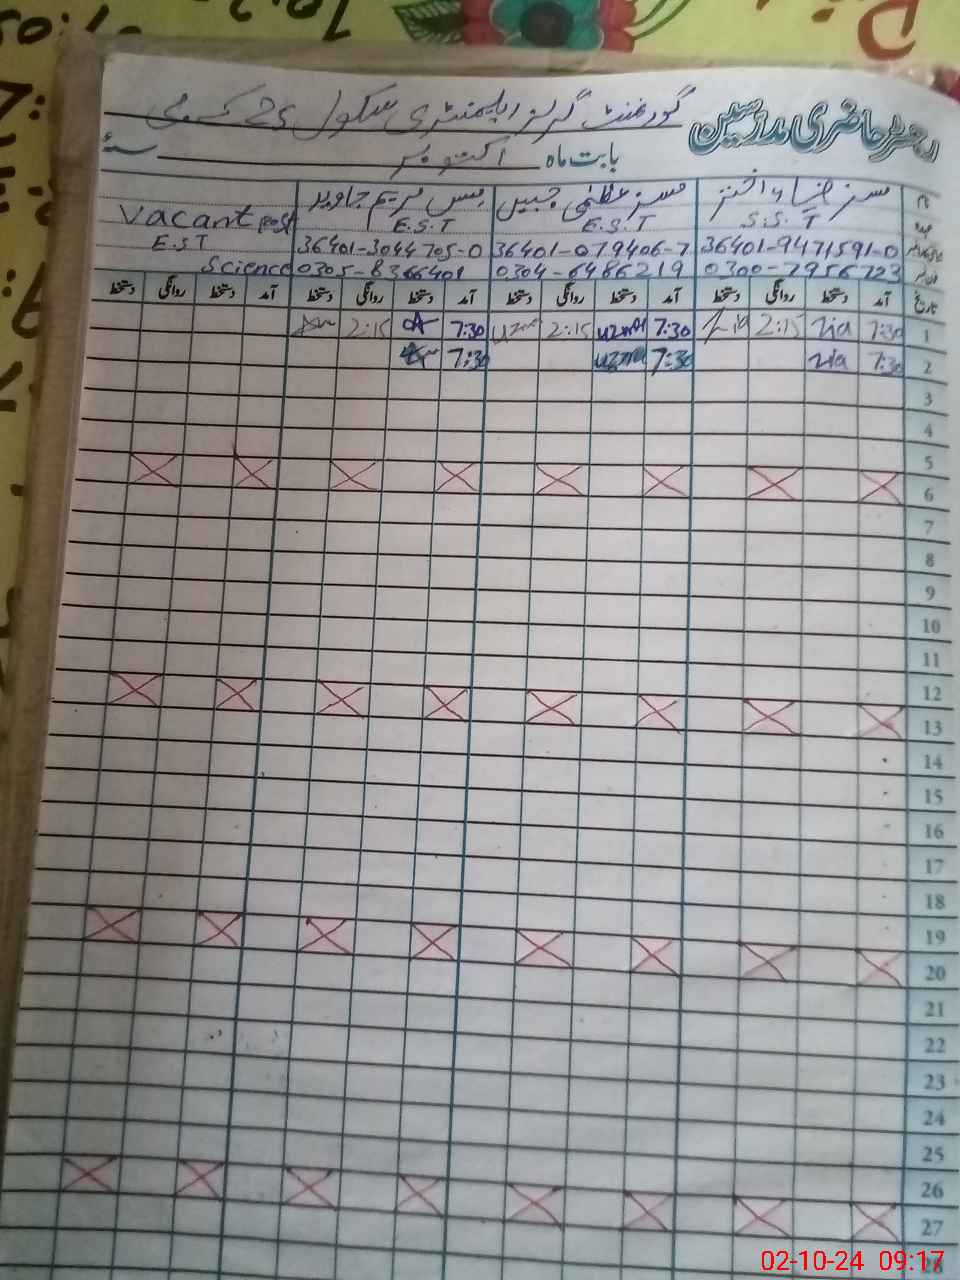 رجسٹر حاضری مدرسین گورنمنٹ گرلز ایلیمنٹری سکول 25 کسی
بابت ماہ اکتوبر سنہ
نام مسز ضیاء اختر مسز عظمیٰ جبیں مس مریم جاوید Vacant post
عہدہ S.S.T E.S.T E.S.T E.S.T
36401-9471591-0 36401-079406-7 36401-3044705-0
0300-7956723 0304-6486219 0305-8366401 Science
تاریخ آمد دستخط روانگی دستخط آمد دستخط روانگی دستخط آمد دستخط روانگی دستخط آمد دستخط روانگی دستخط
1 7:30 Zia 2:15 Zia 7:30 uzma 2:15 uzma 7:30 2:15
2 7:30 Zia 7:30 uzma 7:30
3
4
5
6
7
8
9
10
11
12
13
14
15
16
17
18
19
20
21
22
23
24
25
26
27
28
02-10-24 09:17